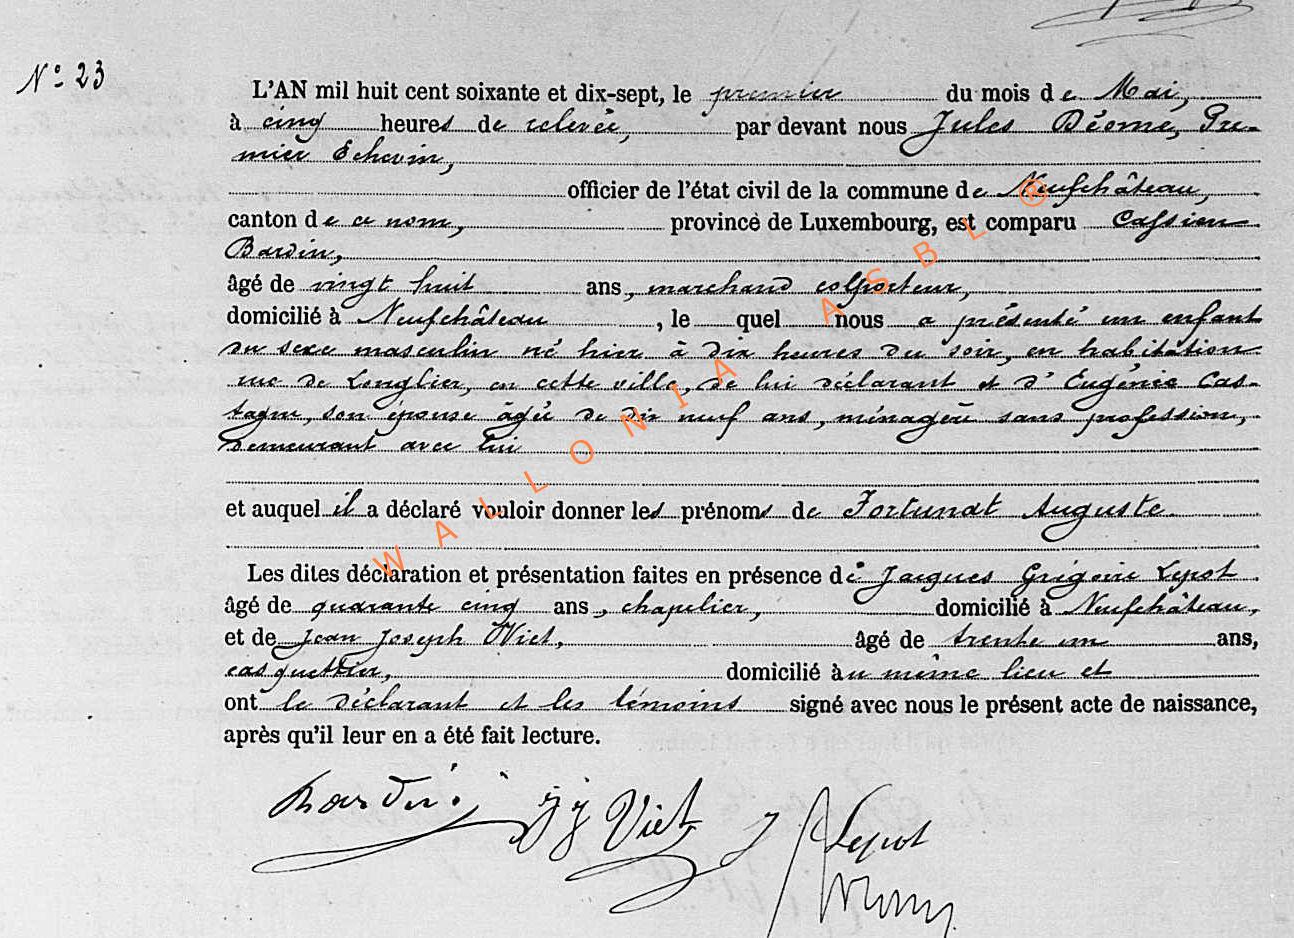 N° 23
L'AN mil huit cent soixante et dix-sept, le premier du mois de Mai,
à cinq heures de relevée, par devant nous Jules Déome, Pre-
mier Echevin,
officier de l'état civil de la commune de Neufchâteau,
canton de ce nom, province de Luxembourg, est comparu Cassien
Bardin,
âgé de vingt huit ans, marchand colporteur,
domicilié à Neufchâteau, le quel nous a présenté un enfant
du sexe masculin né hier à dix heures du soir, en habitation
rue de Longlier, en cette ville, de lui déclarant et d'Eugénie Cas-
tagne, son épouse âgée de dix neuf ans, ménagère sans profession,
demeurant avec lui
et auquel il a déclaré vouloir donner les prénoms de Fortunat Auguste
Les dites déclaration et présentation faites en présence de Jacques Grégoire Lepot
âgé de quarante cinq ans, chapelier, domicilié à Neufchâteau,
et de Jean Joseph Viet, âgé de trente un ans,
casquettier, domicilié au même lieu et
ont le déclarant et les témoins signé avec nous le présent acte de naissance,
après qu'il leur en a été fait lecture.
Bardin JJ Viet J Lepot
WALLONIA ASBL ®